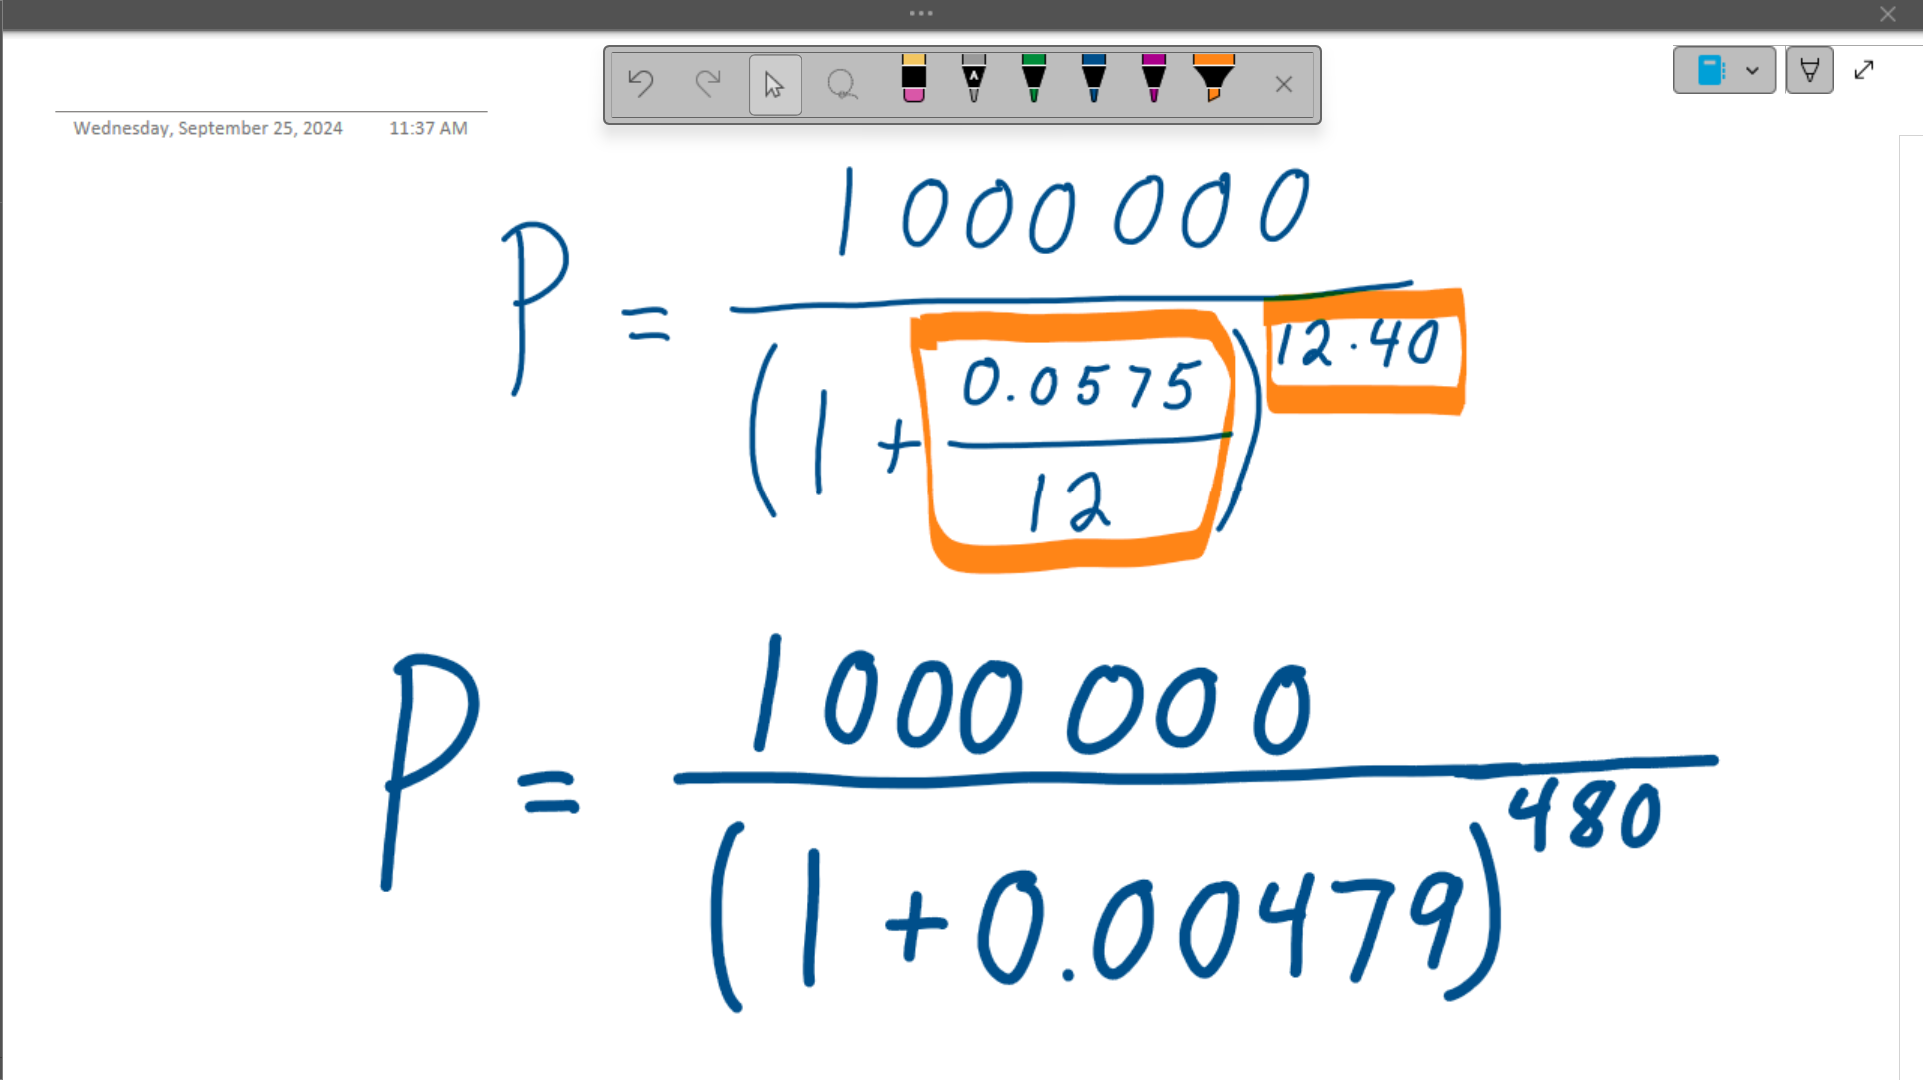 Wednesday, September 25, 2024 11:37 AM
P = 1000 000 / (1 + 0.0575 / 12)^12·40
P = 1000 000 / (1 + 0.00479)^480